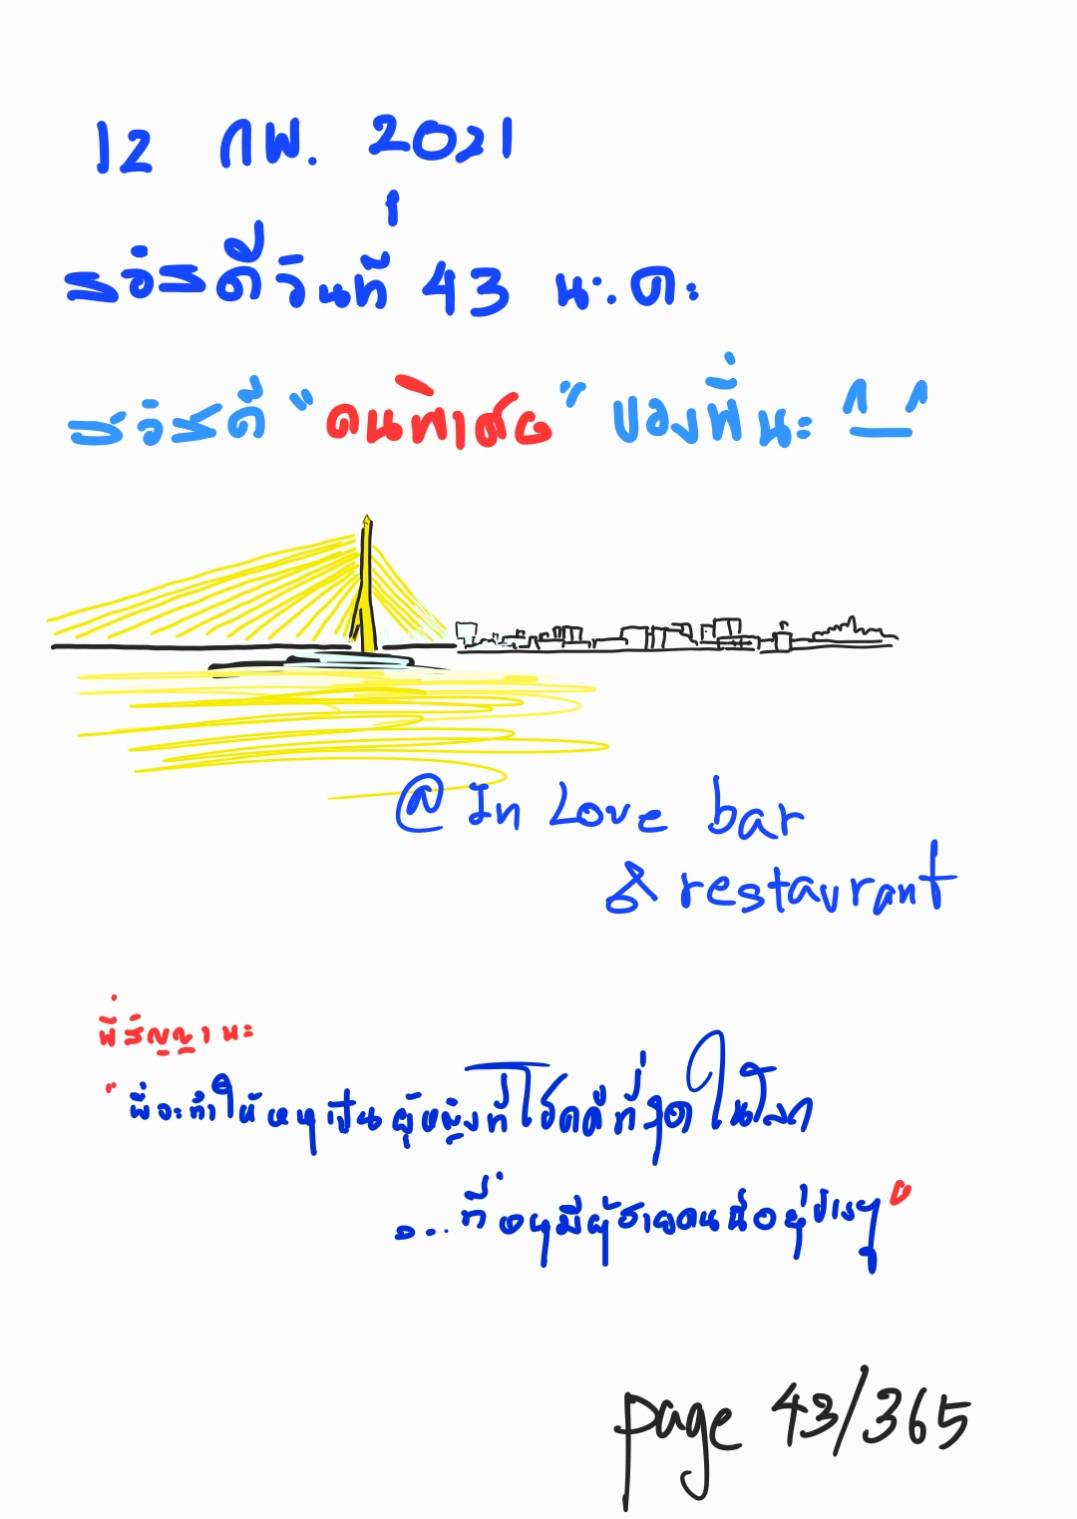 12 กพ. 2021
สวัสดีวันที่ 43 น.ค.
สวัสดี "คนพิเศษ" ของพี่นะ ^_^
@ In Love bar
& restaurant
พี่สัญญานะ
"พี่จะทำให้หนูเป็นผู้หญิงที่โชคดีที่สุดในโลก
...ที่หนูมีผู้ชายคนนี้อยู่ข้างๆ"
page 43/365